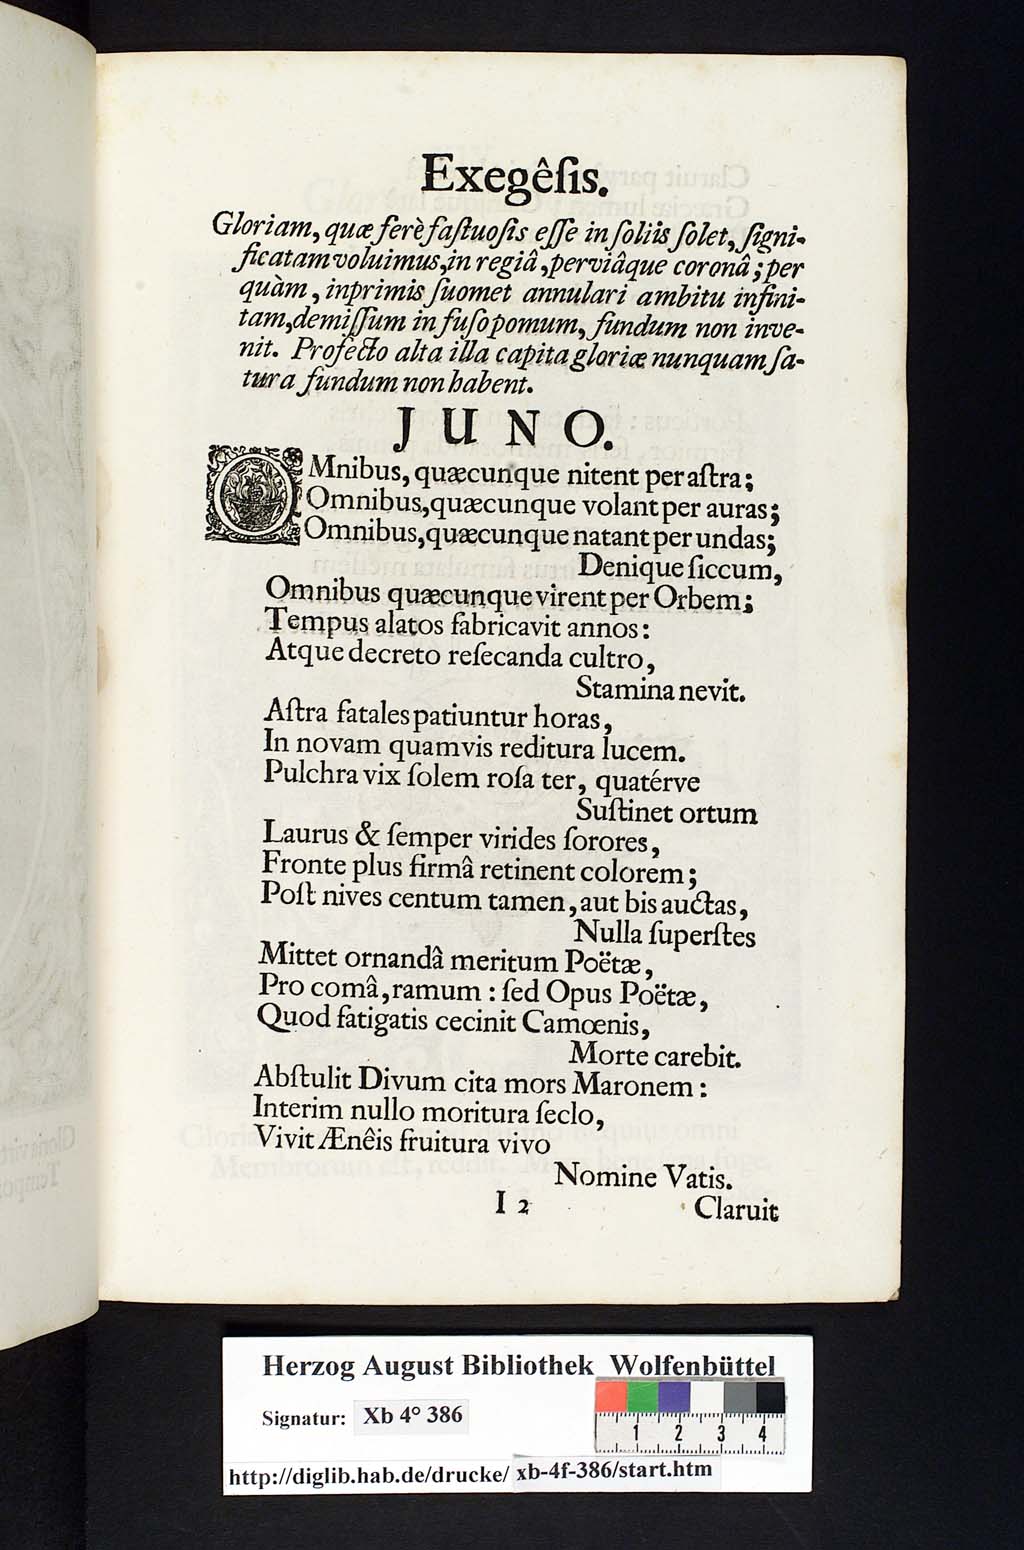 Exegêſis.
Gloriam, quæ ferè faſtuoſis eſſe in ſoliis ſolet, ſigni-
ficatam voluimus, in regiâ, perviâque coronâ; per
quàm, inprimis ſuomet annulari ambitu infini-
tam, demiſſum in fuſo pomum, fundum non inve-
nit. Profecto alta illa capita gloriæ nunquam ſa-
tura fundum non habent.
JUNO.
OMnibus, quæcunque nitent per aſtra;
Omnibus, quæcunque volant per auras;
Omnibus, quæcunque natant per undas;
Denique ſiccum,
Omnibus quæcunque virent per Orbem;
Tempus alatos fabricavit annos:
Atque decreto reſecanda cultro,
Stamina nevit.
Aſtra fatales patiuntur horas,
In novam quamvis reditura lucem.
Pulchra vix ſolem roſa ter, quatérve
Suſtinet ortum
Laurus & ſemper virides ſorores,
Fronte plus firmâ retinent colorem;
Poſt nives centum tamen, aut bis auctas,
Nulla ſuperſtes
Mittet ornandâ meritum Poëtæ,
Pro comâ, ramum: ſed Opus Poëtæ,
Quod fatigatis cecinit Camœnis,
Morte carebit.
Abſtulit Divum cita mors Maronem:
Interim nullo moritura ſeclo,
Vivit Ænêis fruitura vivo
Nomine Vatis.
I 2 Claruit
Herzog August Bibliothek Wolfenbüttel
Signatur: Xb 4° 386
1 2 3 4
http://diglib.hab.de/drucke/ xb-4f-386/start.htm